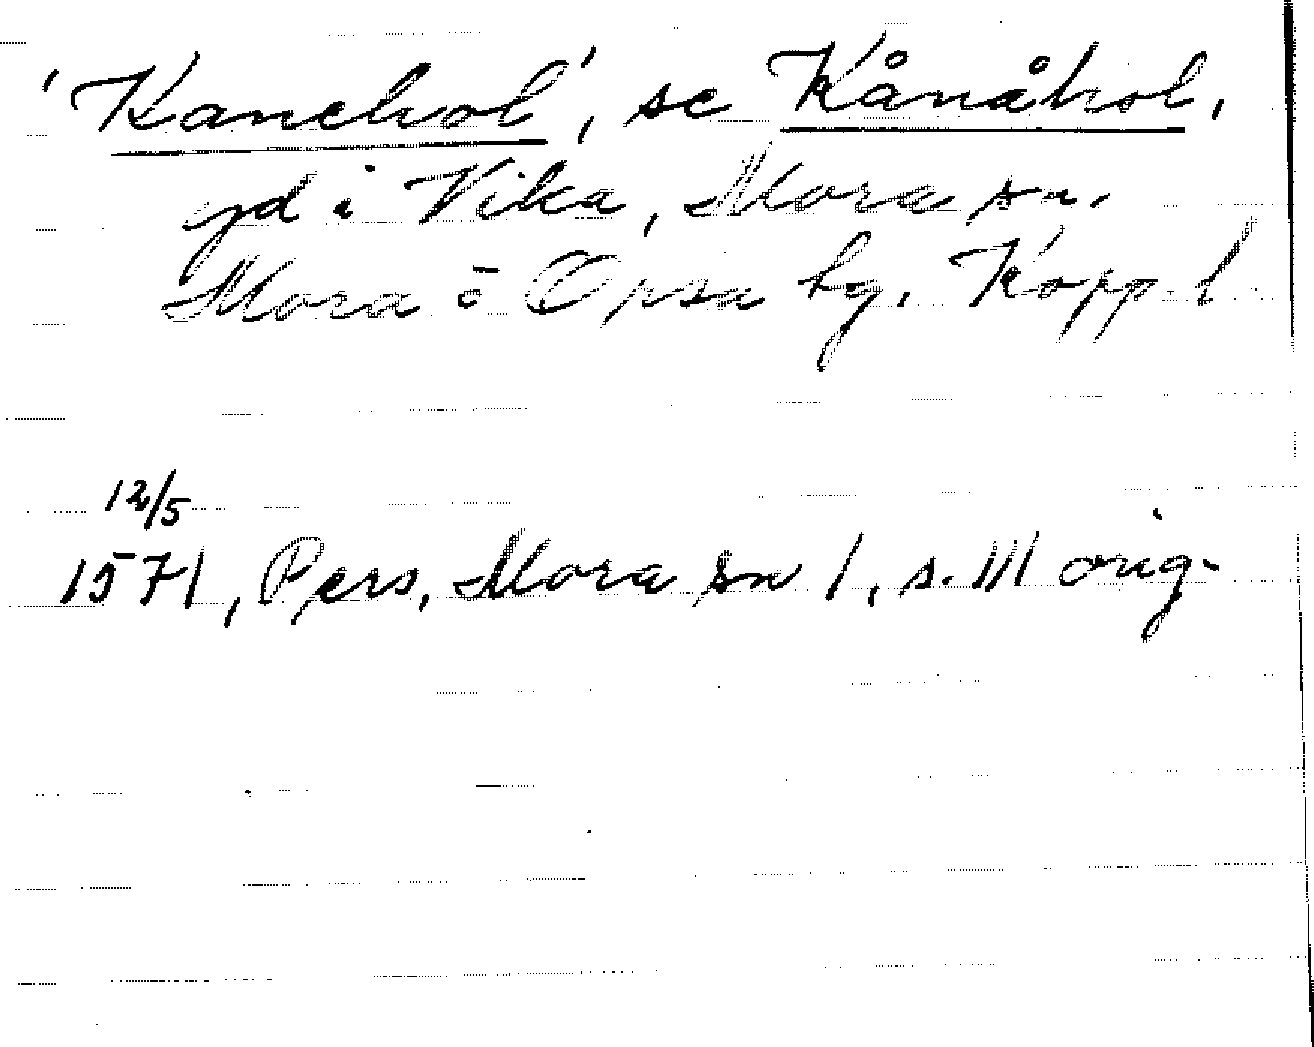 'Kanehol', se Kånåhol,
gd i Vika, Mora sn.
Mora o Orsa tg. Kopp l
12/5
1571, Pers, Mora sn 1, s. III orig.